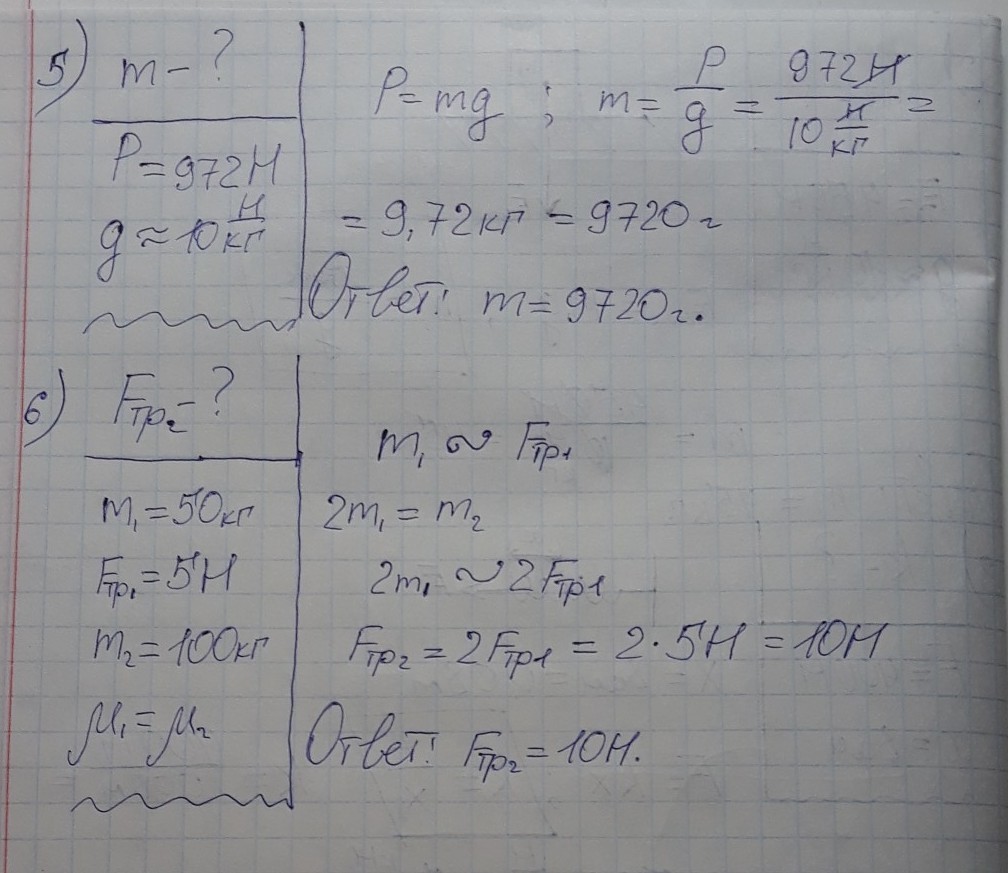 5) m - ?
P = 972Н
g ≈ 10 Н/кг
P = mg ; m = P/g = 972Н / 10 Н/кг =
= 9,72кг = 9720г
Ответ: m = 9720г.
6) Fтр₂ - ?
m₁ = 50кг
Fтр₁ = 5Н
m₂ = 100кг
μ₁ = μ₂
m₁ ~ Fтр1
2m₁ = m₂
2m₁ ~ 2Fтр1
Fтр₂ = 2Fтр1 = 2·5Н = 10Н
Ответ: Fтр₂ = 10Н.